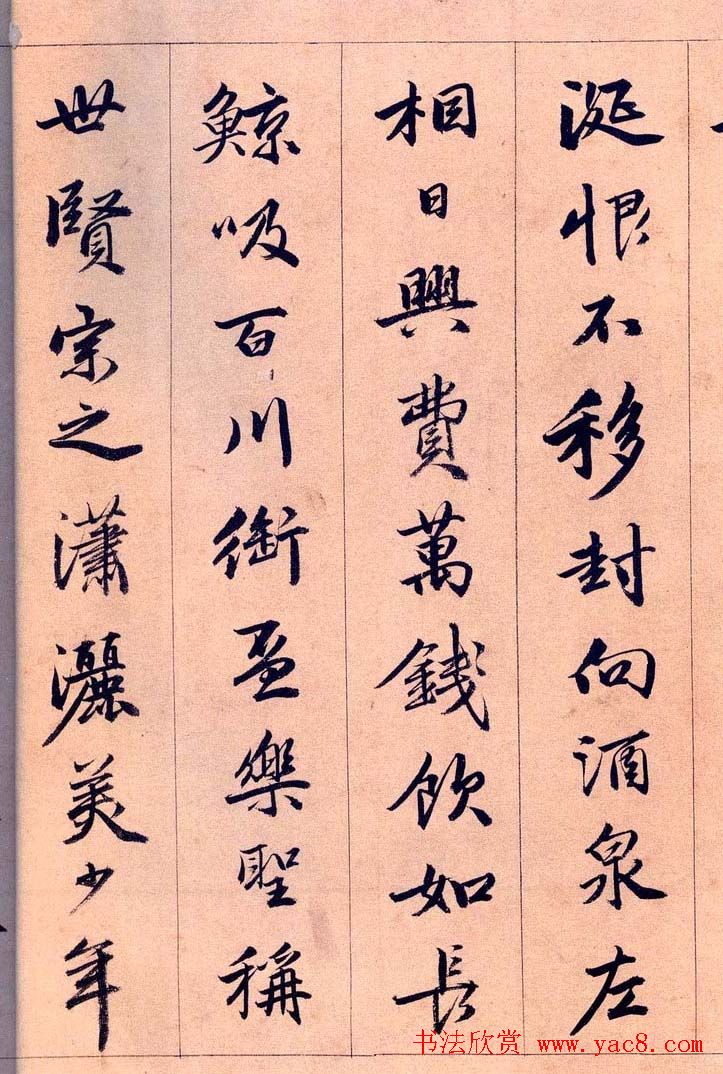 涎恨不移封向酒泉左
相日興費萬錢飲如長
鯨吸百川銜盃樂聖稱
世賢宗之瀟灑美少年
书法欣赏 www.yac8.com